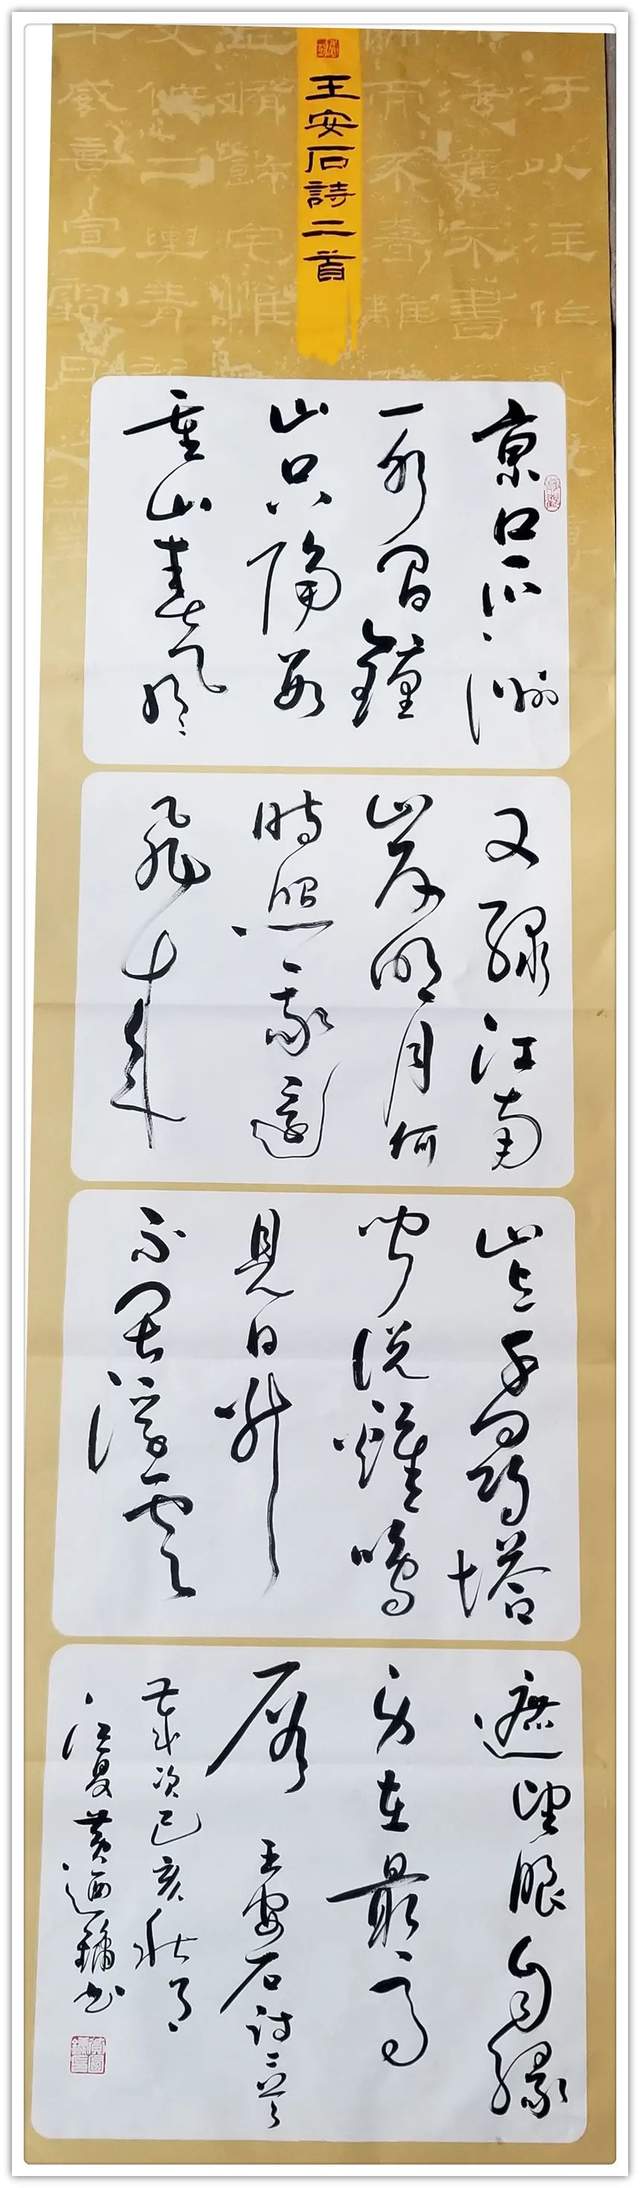 王安石詩二首
京口瓜洲
一水間鐘
山只隔數
重山春風
又綠江南
岸明月何
時照我還
飛來
山上千尋塔
聞說雞鳴
見日升
不畏浮雲
遮望眼自緣
身在最高
層 王安石詩二首
歲次己亥秋月
江夏黃迺鏞書